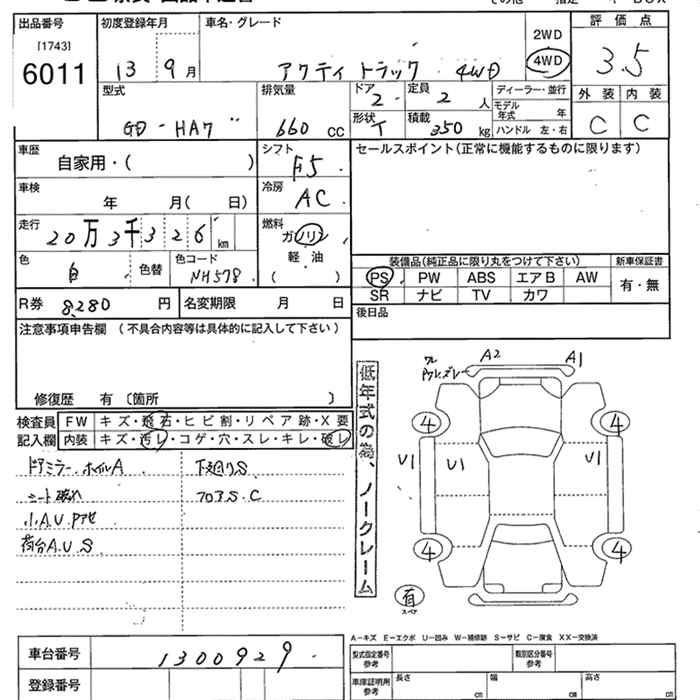 出品番号
[1743]
6011
初度登録年月
13 9 月
車名・グレード
アクティ トラック 4WD
2WD
4WD
評価点
3.5
外装 内装
C C
型式
GD-HA7
排気量
660 CC
ドア
2
定員
2 人
形状
T
積載
350 kg
ディーラー・並行
モデル年式 年
ハンドル 左・右
車歴
自家用・( )
シフト
F5
セールスポイント(正常に機能するものに限ります)
車検
年 月( 日)
冷房
AC
走行
20万3千326 km
燃料
ガソリン
軽油
( )
色
白
色替
色コード
NH578
装備品(純正品に限り丸をつけて下さい)
新車保証書
PS PW ABS エアB AW
有・無
SR ナビ TV カワ
R券 8,280 円
名変期限 月 日
後日品
注意事項申告欄 (不具合内容等は具体的に記入して下さい)
修復歴 有 〔箇所 〕
検査員記入欄
FW キズ・飛石・ヒビ割・リペア跡・X要
内装 キズ・汚レ・コゲ・穴・スレ・キレ・破レ
ドアミラー ホイルA
下廻りS
シート破れ
フロアS.C
小A.U.Pアセ
荷台A.U.S
低年式の為、ノークレーム
A2 A1
4 4
U1 U1 U1
4 4
有
スペア
A-キズ E-エクボ U-凹み W-補修跡 S-サビ C-腐食 XX-交換済
車台番号
1300929
型式指定番号
参考
類別区分番号
参考
登録番号
車庫証明用
参考
長さ cm
幅 cm
高さ cm